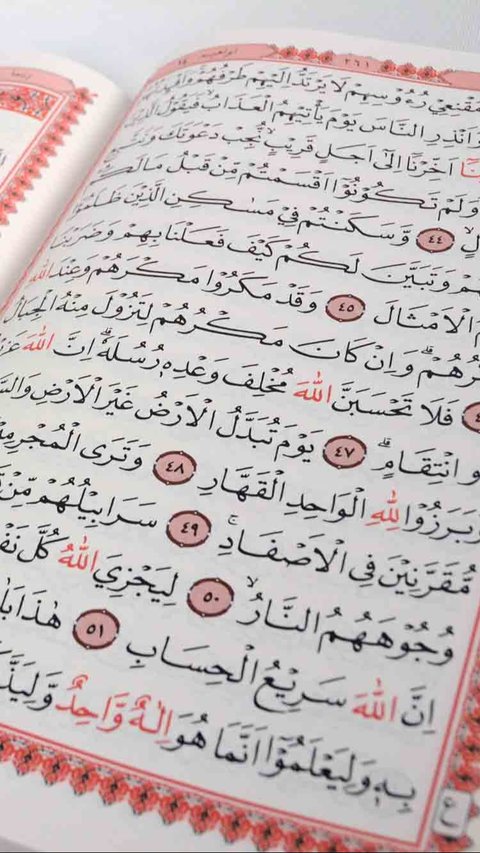 ٢٦١
١٤
مُقْنِعِي رُءُوْسِهِمْ لَا يَرْتَدُّ اِلَيْهِمْ طَرْفُهُمْ
وَاَنْذِرِ النَّاسَ يَوْمَ يَأْتِيْهِمُ الْعَذَابُ فَيَقُوْلُ الَّذِيْنَ
اَخِّرْنَا اِلٰٓى اَجَلٍ قَرِيْبٍۙ نُّجِبْ دَعْوَتَكَ
وَلَمْ تَكُوْنُوْٓا اَقْسَمْتُمْ مِّنْ قَبْلُ مَا لَكُمْ
٤٤ وَّسَكَنْتُمْ فِيْ مَسٰكِنِ الَّذِيْنَ ظَلَمُوْٓا
وَتَبَيَّنَ لَكُمْ كَيْفَ فَعَلْنَا بِهِمْ وَضَرَبْنَا
الْاَمْثَالَ ٤٥ وَقَدْ مَكَرُوْا مَكْرَهُمْ وَعِنْدَ اللّٰهِ
وَاِنْ كَانَ مَكْرُهُمْ لِتَزُوْلَ مِنْهُ الْجِبَالُ
فَلَا تَحْسَبَنَّ اللّٰهَ مُخْلِفَ وَعْدِهٖ رُسُلَهٗۗ اِنَّ اللّٰهَ
انْتِقَامٍۗ ٤٧ يَوْمَ تُبَدَّلُ الْاَرْضُ غَيْرَ الْاَرْضِ
وَبَرَزُوْا لِلّٰهِ الْوَاحِدِ الْقَهَّارِ ٤٨ وَتَرَى الْمُجْرِمِيْنَ
مُّقَرَّنِيْنَ فِى الْاَصْفَادِۚ ٤٩ سَرَابِيْلُهُمْ مِّنْ
وُجُوْهَهُمُ النَّارُۙ ٥٠ لِيَجْزِيَ اللّٰهُ كُلَّ
اِنَّ اللّٰهَ سَرِيْعُ الْحِسَابِ ٥١ هٰذَا
بِهٖ وَلِيَعْلَمُوْٓا اَنَّمَا هُوَ اِلٰهٌ وَّاحِدٌ
ع